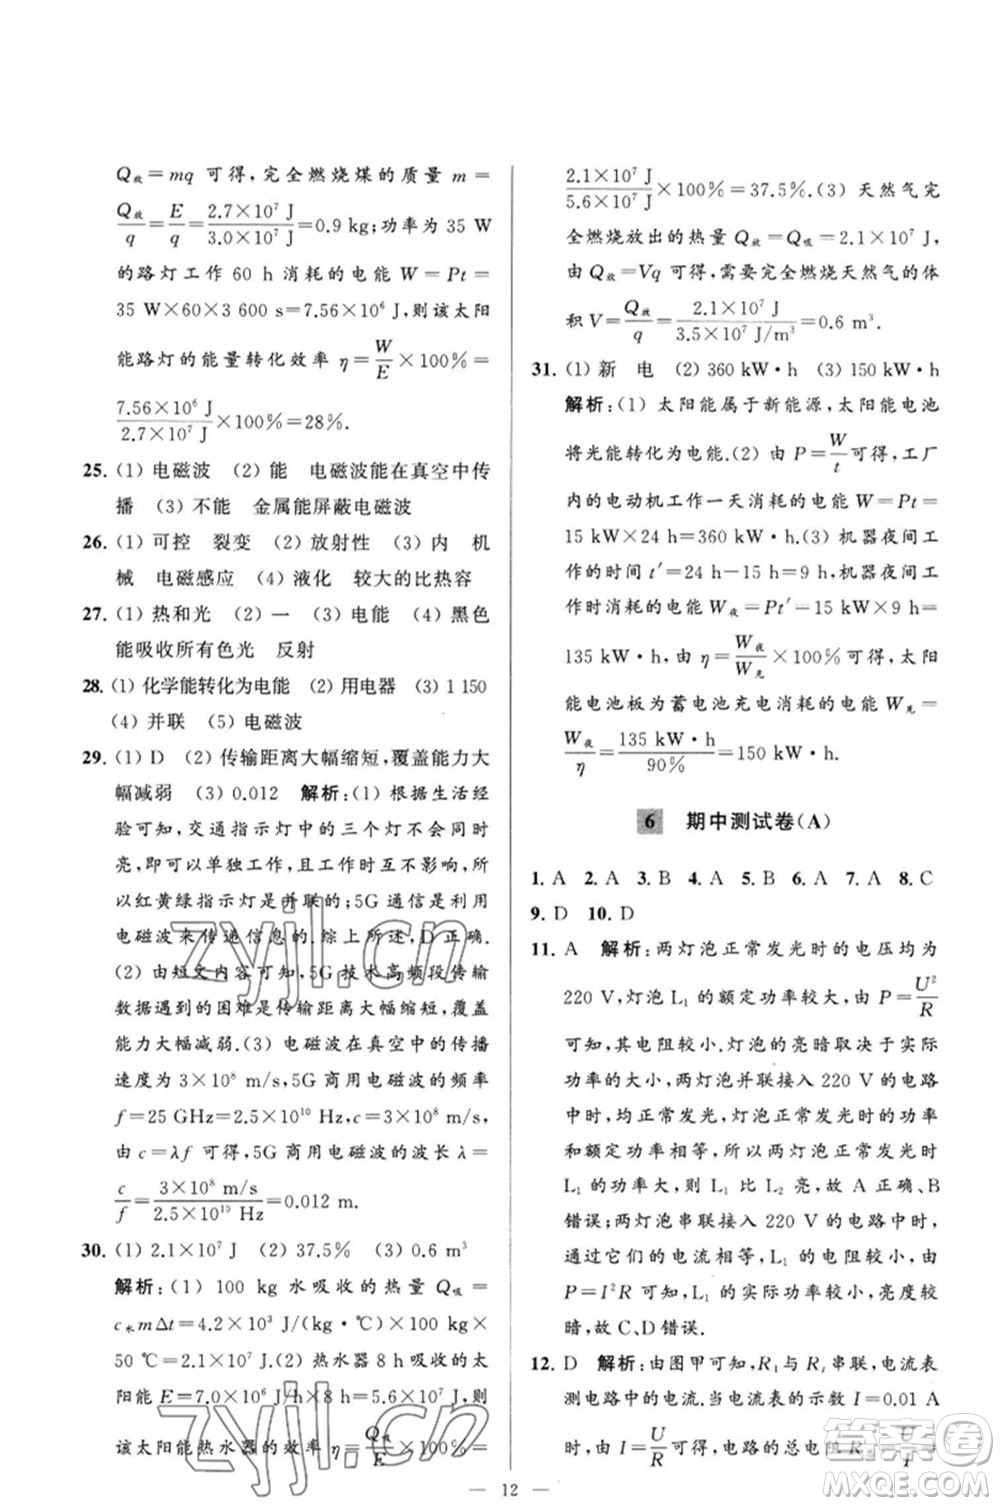 Q放=mq 可得,完全燃烧煤的质量 m=
Q放/q=E/q=2.7×10⁷ J/3.0×10⁷ J=0.9 kg;功率为 35 W
的路灯工作 60 h 消耗的电能 W=Pt=
35 W×60×3 600 s=7.56×10⁶ J,则该太阳
能路灯的能量转化效率 η=W/E×100%=
7.56×10⁶ J/2.7×10⁷ J×100%=28%.
25. (1) 电磁波 (2) 能 电磁波能在真空中传
播 (3) 不能 金属能屏蔽电磁波
26. (1) 可控 裂变 (2) 放射性 (3) 内 机
械 电磁感应 (4) 液化 较大的比热容
27. (1) 热和光 (2) 一 (3) 电能 (4) 黑色
能吸收所有色光 反射
28. (1) 化学能转化为电能 (2) 用电器 (3) 1 150
(4) 并联 (5) 电磁波
29. (1) D (2) 传输距离大幅缩短,覆盖能力大
幅减弱 (3) 0.012 解析:(1) 根据生活经
验可知,交通指示灯中的三个灯不会同时
亮,可以单独工作,且工作时互不影响,所
以红黄绿指示灯是并联的;5G 通信是利用
电磁波来传递信息的.综上所述,D 正确.
(2) 由短文内容可知,5G 技术高频段传输
数据遇到的困难是传输距离大幅缩短,覆盖
能力大幅减弱.(3) 电磁波在真空中的传播
速度为 3×10⁸ m/s,5G 商用电磁波的频率
f=25 GHz=2.5×10¹⁰ Hz,
由 c=λf 可得,5G 商用电磁波的波长 λ=
c/f=3×10⁸ m/s/2.5×10¹⁰ Hz=0.012 m.
30. (1) 2.1×10⁷ J (2) 37.5% (3) 0.6 m³
解析:(1) 100 kg 水吸收的热量 Q吸=
c水mΔt=4.2×10³ J/(kg·℃)×100 kg×
50 ℃=2.1×10⁷ J.(2) 热水器 8 h 吸收的太
阳能 E=7.0×10⁶ J/h×8 h=5.6×10⁷ J,则
该太阳能热水器的效率 η=Q吸/E×100%=
2.1×10⁷ J/5.6×10⁷ J×100%=37.5%.(3) 天然气完
全燃烧放出的热量 Q放=Q吸=2.1×10⁷ J,
由 Q放=Vq 可得,需要完全燃烧天然气的体
积 V=Q放/q=2.1×10⁷ J/3.5×10⁷ J/m³=0.6 m³.
31. (1) 新 电 (2) 360 kW·h (3) 150 kW·h
解析:(1) 太阳能属于新能源,太阳能电池
将光能转化为电能.(2) 由 P=W/t可得,工厂
内的电动机工作一天消耗的电能 W=Pt=
15 kW×24 h=360 kW·h.(3) 机器夜间工
作的时间 t′=24 h-15 h=9 h,机器夜间工
作时消耗的电能 W夜=Pt′=15 kW×9 h=
135 kW·h.由 η=W夜/W充×100%可得,太阳
能电池板为蓄电池充电消耗的电能 W充=
W夜/η=135 kW·h/90%=150 kW·h.
6 期中测试卷(A)
1. A 2. A 3. B 4. A 5. B 6. A 7. A 8. C
9. D 10. D
11. A 解析:两灯泡正常发光时的电压均为
220 V,灯泡 L₁ 的额定功率较大,由 P=U²/R
可知,其电阻较小.灯泡的亮暗取决于实际
功率的大小,两灯泡并联接入 220 V 的电路
中时,均正常发光,灯泡正常发光时的功率
和额定功率相等,所以两灯泡正常发光时
L₁ 的功率大,则 L₁ 比 L₂ 亮,故 A 正确、B
错误;两灯泡串联接入 220 V 的电路中时,
通过它们的电流相等,L₁ 的电阻较小,由
P=I²R 可知,L₁ 的实际功率较小,灯光较
暗,故 C、D 错误.
12. D 解析:由图甲可知,R₁ 与 Rₜ 串联,电流表
测电路中的电流.当电流表的示数 I=0.01 A
时,由 I=U/R可得,电路的总电阻 R=U/I
— 12 —
zyjl.cn
zyjl.cn
答案圈
MXQE.COM